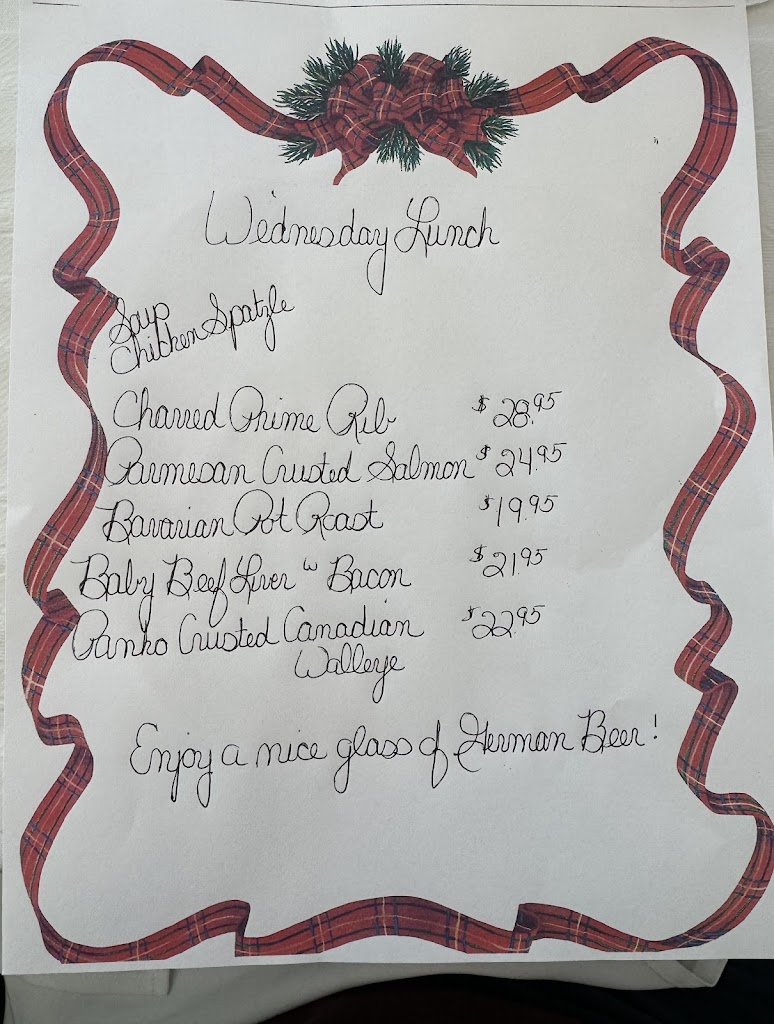 Wednesday Lunch
Soup
Chicken Spatzle
Charred Prime Rib $28.95
Parmesan Crusted Salmon $24.95
Bavarian Pot Roast $19.95
Baby Beef Liver w Bacon $21.95
Panko Crusted Canadian $22.95
Walleye
Enjoy a nice glass of German Beer!